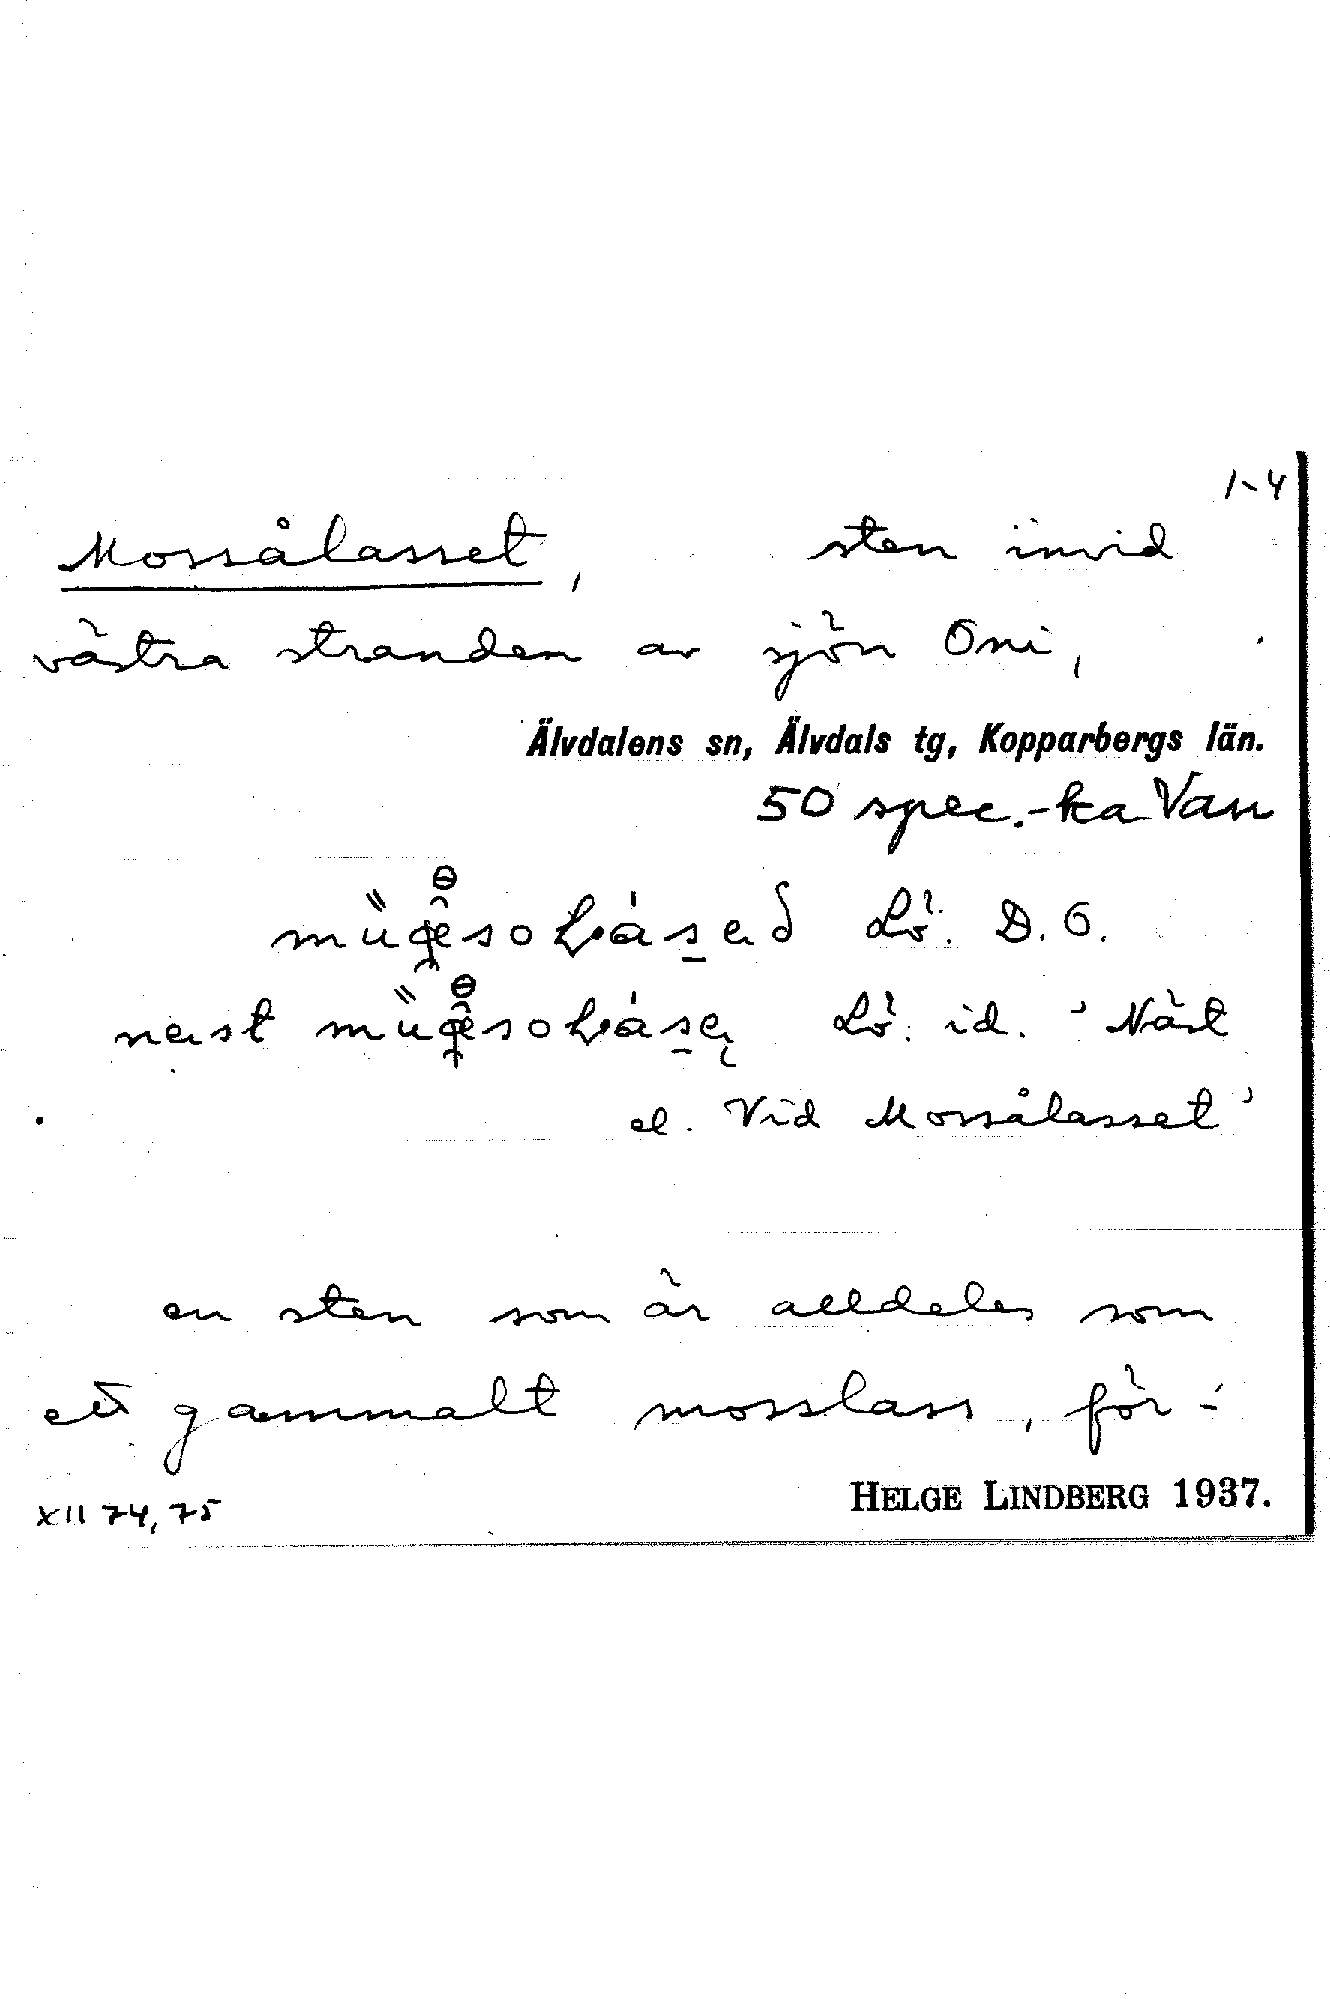 1-4
Mossålasset, sten invid
västra stranden av sjön Oni,
Älvdalens sn, Älvdals tg, Kopparbergs län.
50 spec.-ka Van
Lö. D. O.
Lö. id. ’Näst
el. Vid Mossålasset’
en sten som är alldeles som
ett gammalt mosslass, för-
XII 74, 75
HELGE LINDBERG 1937.